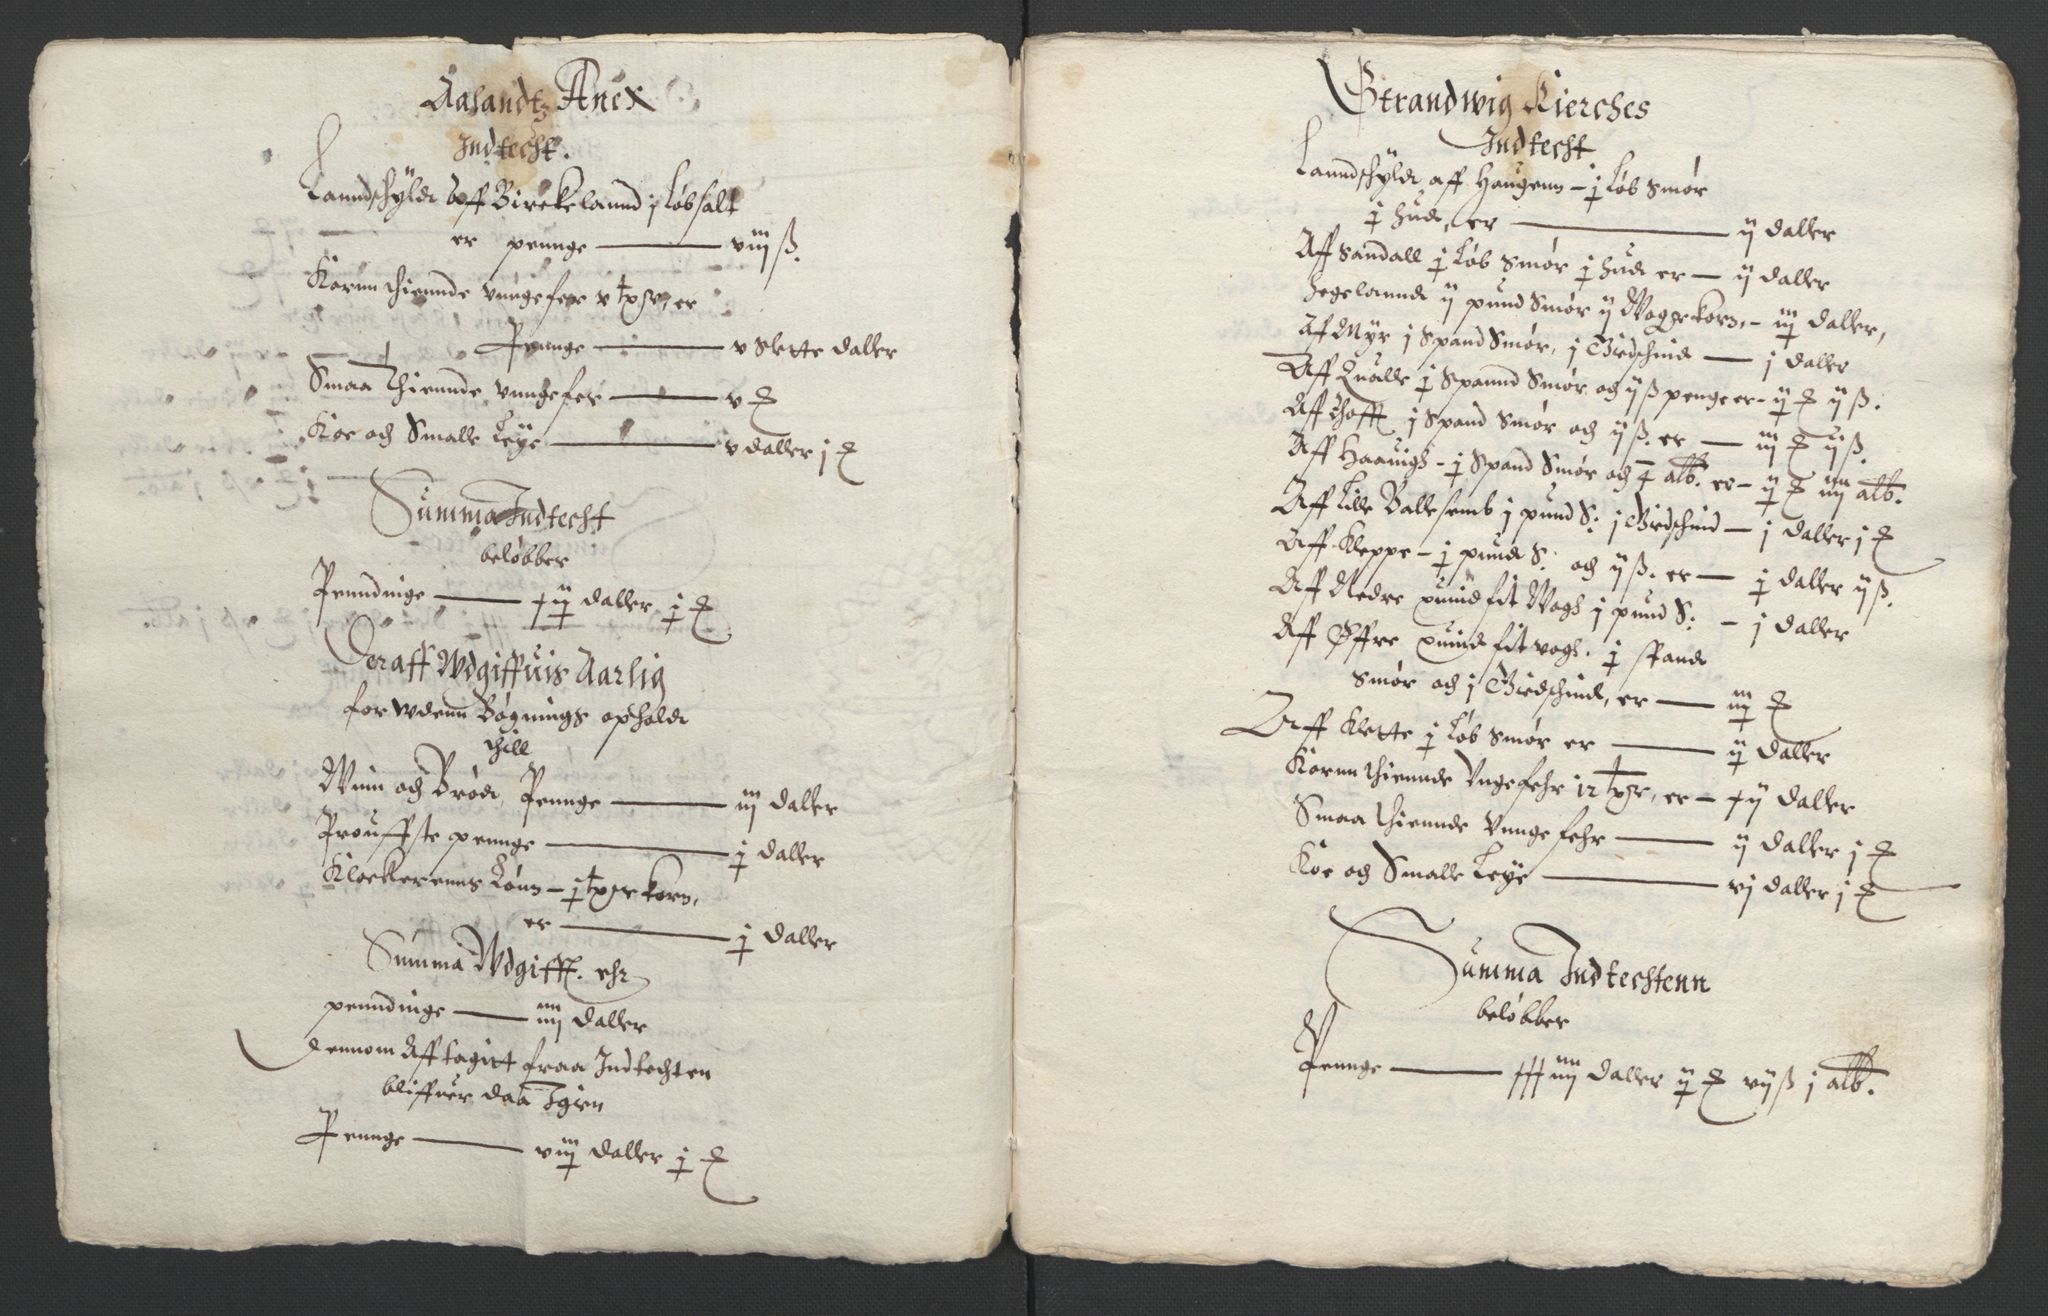 Aasandtz Anex
Indtecht.
Lanndschyld aff Birckelannd j Løb salt
er pennge —— viij ß.
Kornn thiennde vungefer v tpꝫr, er
Pennge —— v slette daller
Smaa thiennde vungefer —— v
Koe och Smalle Leye —— v daller j
Summa Indtecht
beløbber
Penndinge —— daller
Deraff Wdgiffuis Aarlig
for wdenn Bøgnings ophold
thill
Wiin och Brød, Pennge —— iij daller
Prouffste pennge —— j daller
Klockerenns Lønn — korn,
er —— j daller
Summa Wdgifft. ehr
penndinge —— iiij daller
dennom Aff tagitt fraa Indtechten
bliffuer daa Igien
Pennge —— viij daller j
Strandwig Kierches
Indtecht
Lanndschyld aff Haugenn — j Løb smør
j hud, er —— ij daller
Aff Sandall j Løb smør j hud er — ij daller
Hegelannd ij pund Smør ij Wogge korn, — iij daller,
Af Myr j Spand Smør, j Giedschind — j daller
Aff Qualle j Spannd Smør och ij ß penge er — ij ij ß.
Aff j Spand Smør och ij ß. er — iij ij ß.
Aff Haauigh — j Spand Smør och alb. er — ij iiij alb.
Aff Lille Ballesemb j pund S: j Giedschind — j daller j
Aff Kleppe — j pund S: och ij ß. er — j daller ij ß.
Aff Nedre fit Wogh j pund S: — j daller
Aff Øffre fit vogh. j spand
smør och j Giedschind, er — iij
Aff Klette j Løb smør er —— ij daller
Kornn thiennde Vngefehr 12 tpꝫr, er — daller
Smaa thiennde Vnngefehr —— ij daller j
Koe och Smalle Leye —— vj daller j
Summa Indtechtenn
beløbber
Pennge —— daller ij vij ß j alb.